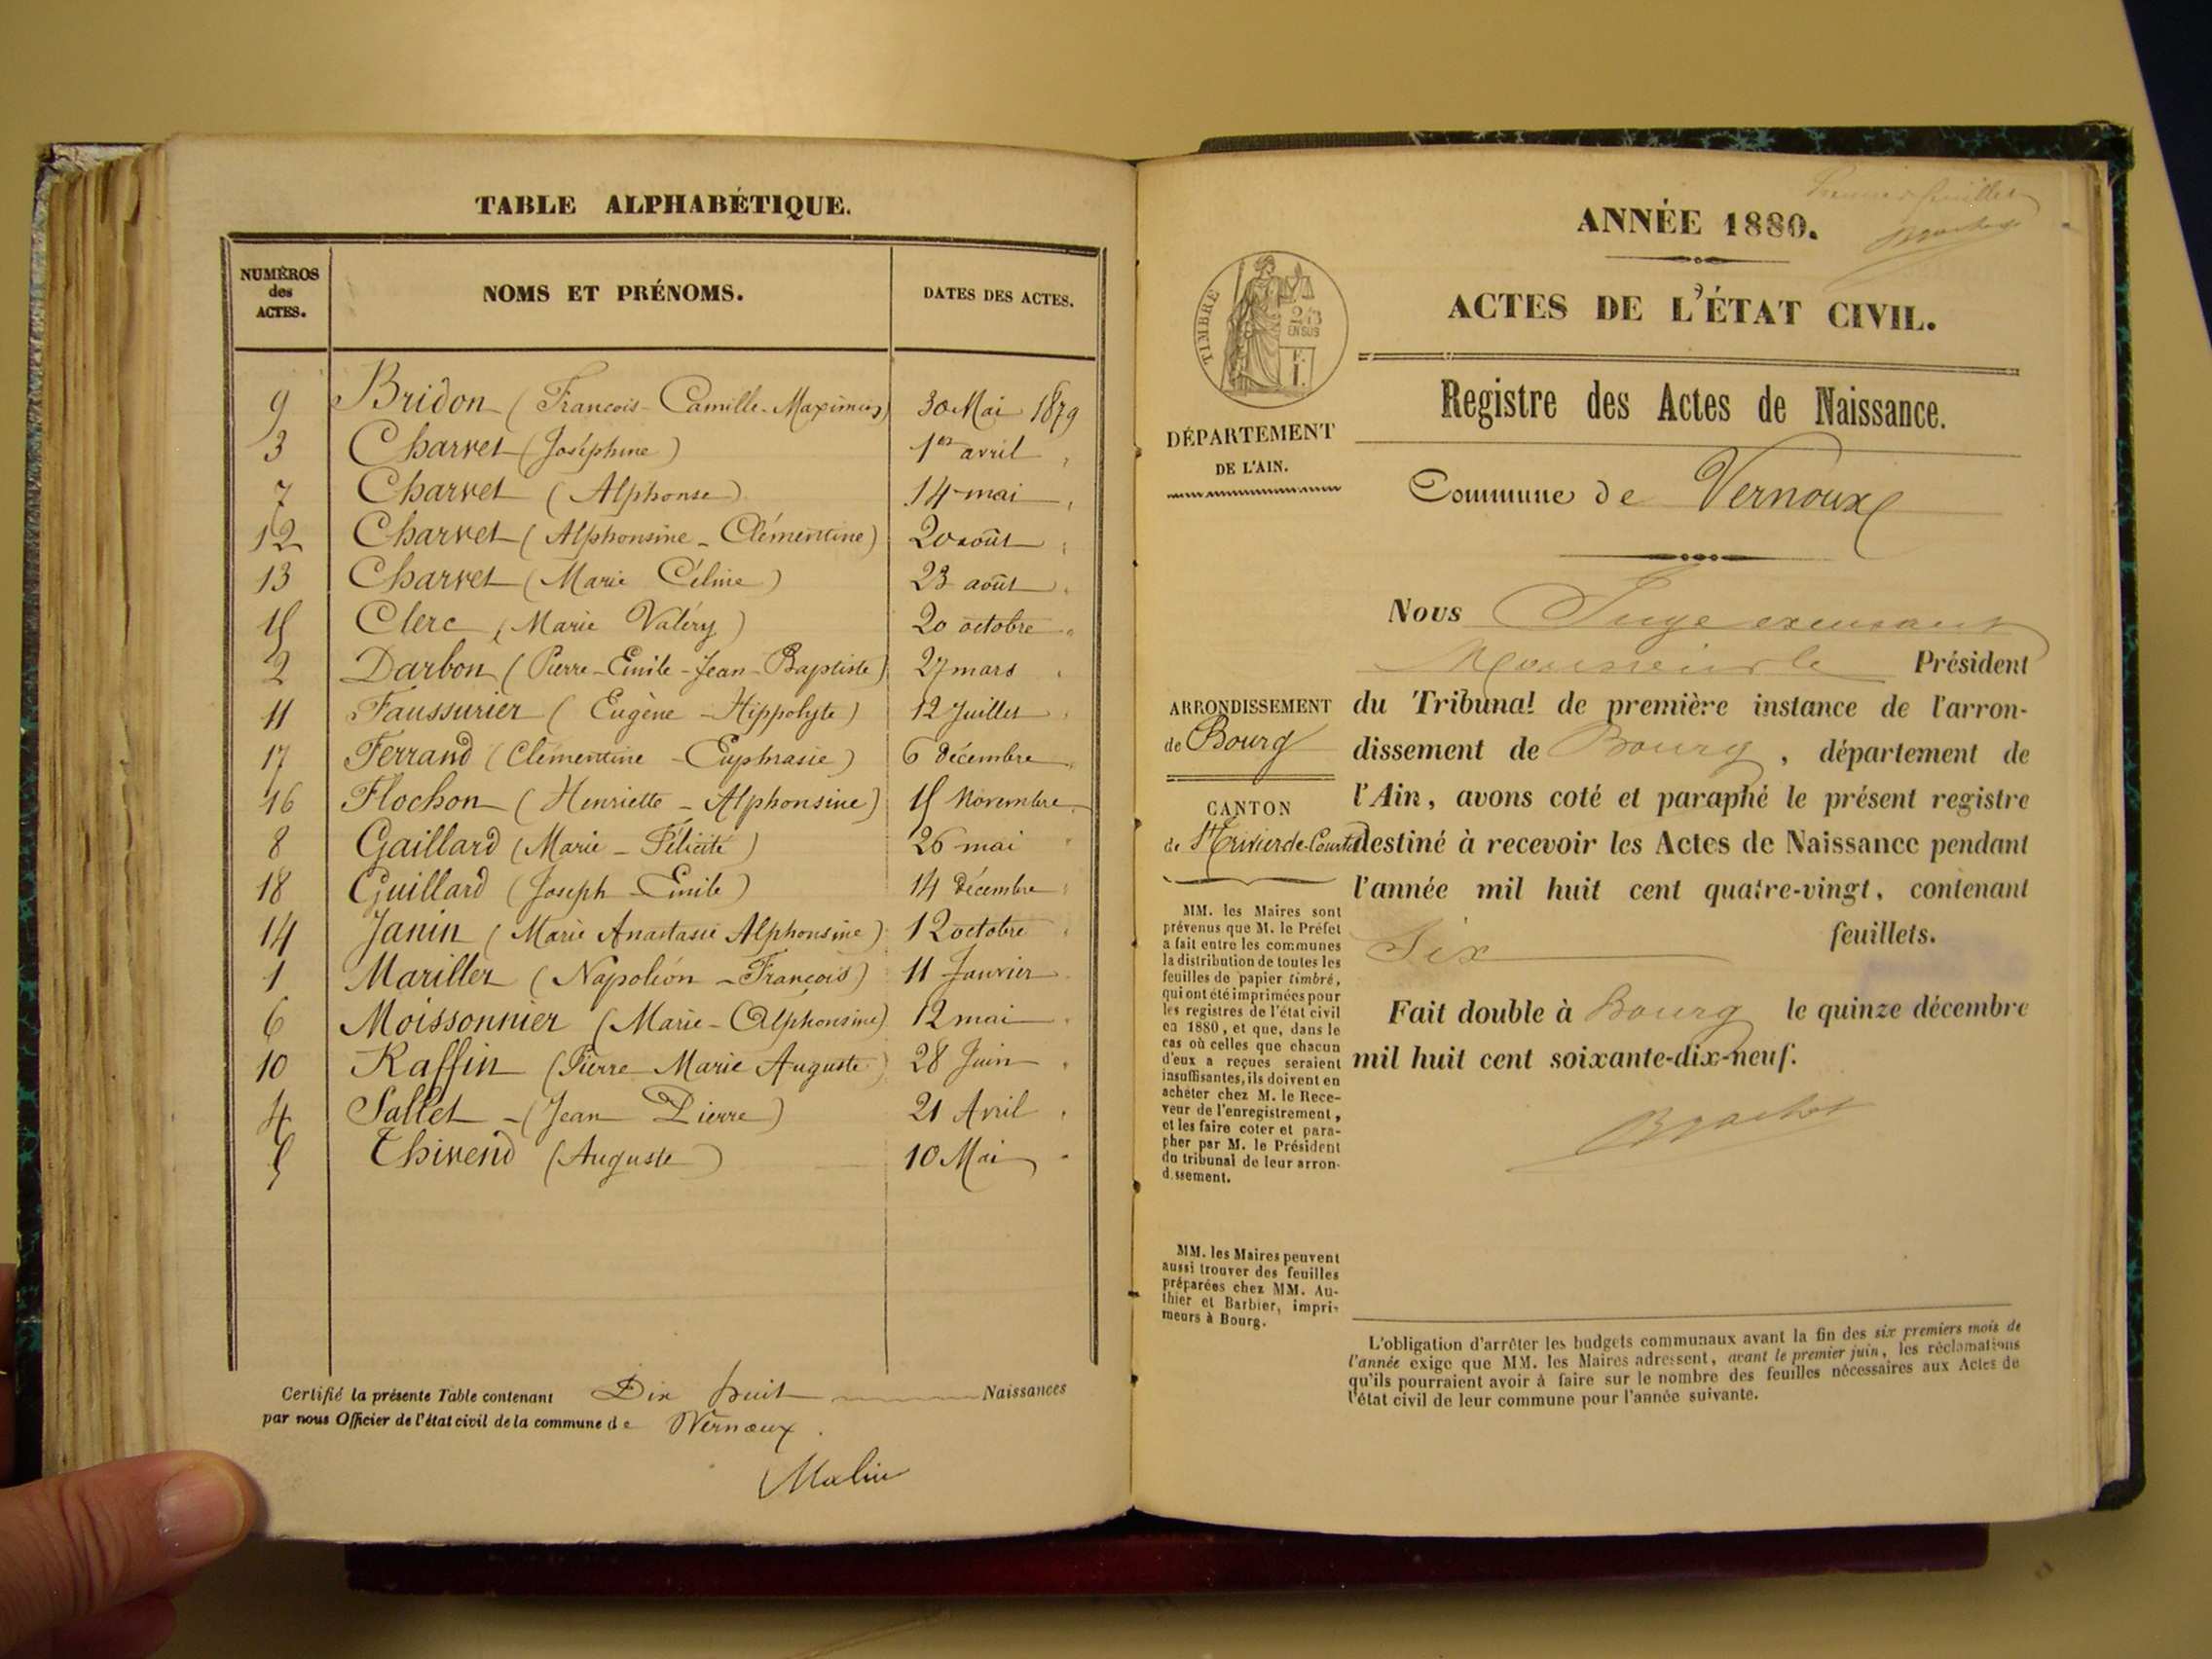 TABLE ALPHABÉTIQUE.
NUMÉROS
des
ACTES.
NOMS ET PRÉNOMS.
DATES DES ACTES.
9 Bridon (François-Camille-Maximin) 30 Mai 1879
3 Charvet (Joséphine) 1er avril "
7 Charvet (Alphonse) 14 mai "
12 Charvet (Alphonsine-Clémentine) 20 août "
13 Charvet (Marie Céline) 23 août "
15 Clerc (Marie Valéry) 20 octobre "
2 Darbon (Pierre-Emile-Jean-Baptiste) 27 mars "
11 Faussurier (Eugène-Hippolyte) 12 Juillet "
17 Ferrand (Clémentine-Euphrasie) 6 Décembre "
16 Flochon (Henriette-Alphonsine) 15 Novembre "
8 Gaillard (Marie-Félicité) 26 mai "
18 Guillard (Joseph-Emile) 14 Décembre "
14 Janin (Marie Anastasie Alphonsine) 12 octobre "
1 Mariller (Napoléon-François) 11 Janvier "
6 Moissonnier (Marie-Alphonsine) 12 mai "
10 Raffin (Pierre Marie Auguste) 28 Juin "
4 Sallet - (Jean Pierre) 21 Avril "
5 Thivend (Auguste) 10 Mai "
Certifié la présente Table contenant Dix huit Naissances
par nous Officier de l'état civil de la commune de Vernoux.
Malin
Premier feuillet
ANNÉE 1880.
ACTES DE L'ÉTAT CIVIL.
TIMBRE
2/10
EN SUS
Registre des Actes de Naissance.
DÉPARTEMENT
DE L'AIN.
Commune de Vernoux
Nous Juge excusant
Monsieur le Président
ARRONDISSEMENT
de Bourg
du Tribunal de première instance de l'arron-
dissement de Bourg, département de
l'Ain, avons coté et paraphé le présent registre
CANTON
de St Trivier de Courtes
destiné à recevoir les Actes de Naissance pendant
l'année mil huit cent quatre-vingt, contenant
Six feuillets.
Fait double à Bourg le quinze décembre
mil huit cent soixante-dix-neuf.
MM. les Maires sont
prévenus que M. le Préfet
a fait entre les communes
la distribution de toutes les
feuilles de papier timbré,
qui ont été imprimées pour
les registres de l'état civil
en 1880, et que, dans le
cas où celles que chacun
d'eux a reçues seraient
insuffisantes, ils doivent en
acheter chez M. le Rece-
veur de l'enregistrement,
et les faire coter et para-
pher par M. le Président
du tribunal de leur arron-
dissement.
MM. les Maires peuvent
aussi trouver des feuilles
préparées chez MM. Au-
thier et Barbier, impri-
meurs à Bourg.
L'obligation d'arrêter les budgets communaux avant la fin des six premiers mois de
l'année exige que MM. les Maires adressent, avant le premier juin, les réclamations
qu'ils pourraient avoir à faire sur le nombre des feuilles nécessaires aux Actes de
l'état civil de leur commune pour l'année suivante.